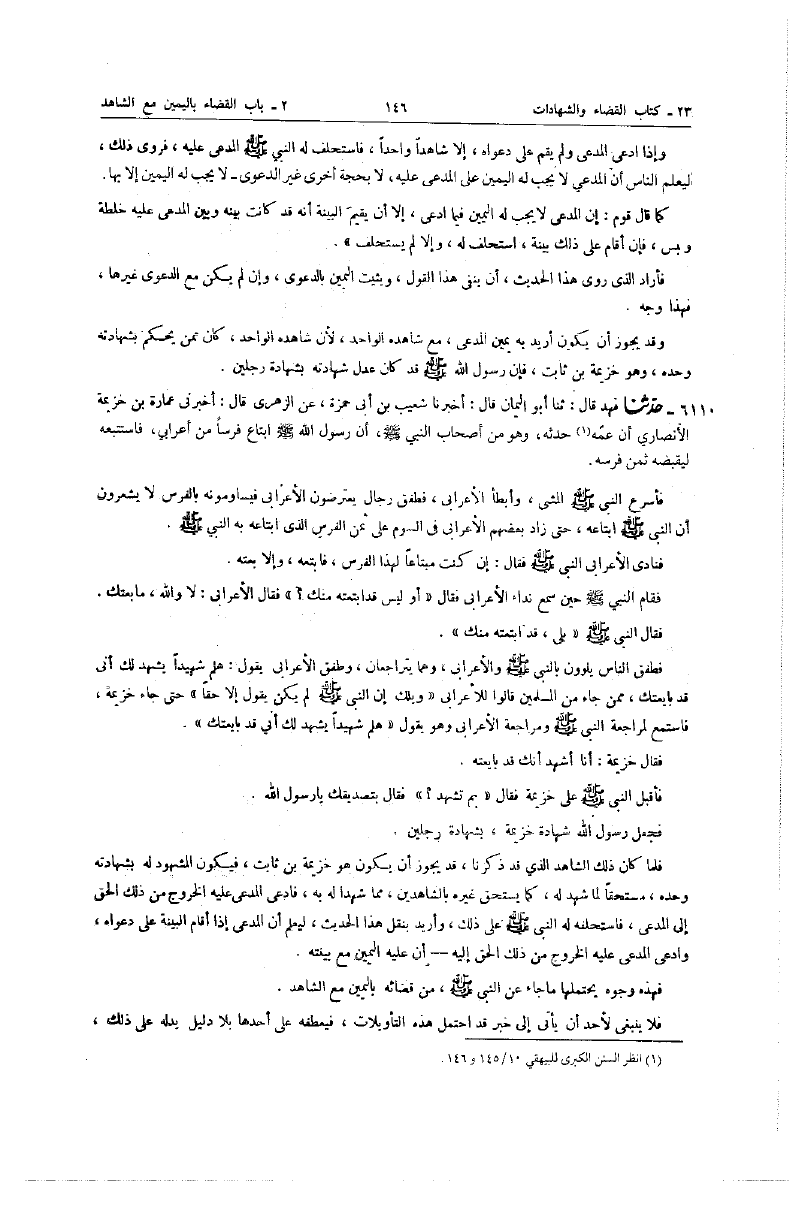 ٢٣ ـ كتاب القضاء والشهادات ١٤٦ ٢ ـ باب القضاء باليمين مع الشاهد
وإذا ادعى المدعى ولم يقم على دعواه ، إلا شاهداً واحداً ، فاستحلف له النبي ﷺ المدعى عليه ، فروى ذلك ،
ليعلم الناس أن المدعي لا يجب له اليمين على المدعى عليه ، لا بحجة أخرى غير الدعوى ـ لا يجب له اليمين إلا بها .
كما قال قوم : إن المدعى لا يجب له اليمين فيما ادعى ، إلا أن يقيم البينة أنه قد كانت بينه وبين المدعى عليه خلطة
و بس ، فإن أقام على ذلك بينة ، استحلف له ، وإلا لم يستحلف » .
فأراد الذى روى هذا الحديث ، أن ينفى هذا القول ، ويثبت اليمين بالدعوى ، وإن لم يكن مع الدعوى غيرها ،
فهذا وجه .
وقد يجوز أن يكون أريد به يمين المدعى ، مع شاهده الواحد ، لأن شاهده الواحد ، كان ممن يحكم بشهادته
وحده ، وهو خزيمة بن ثابت ، فإن رسول الله ﷺ قد كان عدل شهادته بشهادة رجلين .
٦١١٠ ـ حدثنا فهد قال : ثنا أبو اليمان قال : أخبرنا شعيب بن أبى حمزة ، عن الزهرى قال : أخبرنى عمارة بن خزيمة
الأنصاري أن عمّه(١) حدثه، وهو من أصحاب النبي ﷺ، أن رسول الله ﷺ ابتاع فرساً من أعرابي، فاستتبعه
ليقبضه ثمن فرسه.
فأسرع النبي ﷺ المشى ، وأبطأ الأعرابى ، فطفق رجال يعترضون الأعرابى فيساومونه بالفرس لا يشعرون
أن النبى ﷺ ابتاعه ، حتى زاد بعضهم الأعرابى فى السوم على ثمن الفرس الذى ابتاعه به النبي ﷺ .
فنادى الأعرابى النبي ﷺ فقال : إن كنت مبتاعاً لهذا الفرس ، فابتعه ، وإلا بعته .
فقام النبي ﷺ حين سمع نداء الأعرابى فقال « أو ليس قد ابتعته منك ؟ » فقال الأعرابى : لا والله ، ما بعتك .
فقال النبي ﷺ « بلى ، قد ابتعته منك » .
فطفق الناس يلوون بالنبي ﷺ والأعرابى ، وهما يتراجعان ، وطفق الأعرابى يقول : هلم شهيداً يشهد لك أنى
قد بايعتك ، ممن جاء من المسلمين قالوا للأعرابى « ويلك إن النبي ﷺ لم يكن يقول إلا حقاً » حتى جاء خزيمة ،
فاستمع لمراجعة النبي ﷺ ومراجعة الأعرابى وهو يقول « هلم شهيداً يشهد لك أني قد بايعتك » .
فقال خزيمة : أنا أشهد أنك قد بايعته .
فأقبل النبي ﷺ على خزيمة فقال « بم تشهد ؟ » فقال بتصديقك يارسول الله .
فجعل رسول الله شهادة خزيمة ، بشهادة رجلين .
فلما كان ذلك الشاهد الذي قد ذكرنا ، قد يجوز أن يكون هو خزيمة بن ثابت ، فيكون المشهود له بشهادته
وحده ، مستحقاً لما شهد له ، كما يستحق غيره بالشاهدين ، مما شهدا له به ، فادعى المدعى عليه الخروج من ذلك الحق
إلى المدعى ، فاستحلفه له النبي ﷺ على ذلك ، وأريد بنقل هذا الحديث ، ليعلم أن المدعى إذا أقام البينة على دعواه ،
وادعى المدعى عليه الخروج من ذلك الحق إليه — أن عليه اليمين مع بينته .
فهذه وجوه يحتملها ماجاء عن النبي ﷺ ، من قضائه باليمين مع الشاهد .
فلا ينبغى لأحد أن يأتى إلى خبر قد احتمل هذه التأويلات ، فيعطفه على أحدها بلا دليل يدله على ذلك ،
(١) انظر السنن الكبرى للبيهقي ١٤٥/١٠ و ١٤٦ .